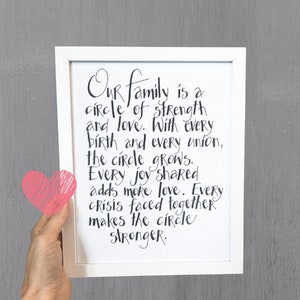 Our family is a
circle of strength
and love. With every
birth and every union,
the circle grows.
Every joy shared
adds more love. Every
crisis faced together
makes the circle
stronger.